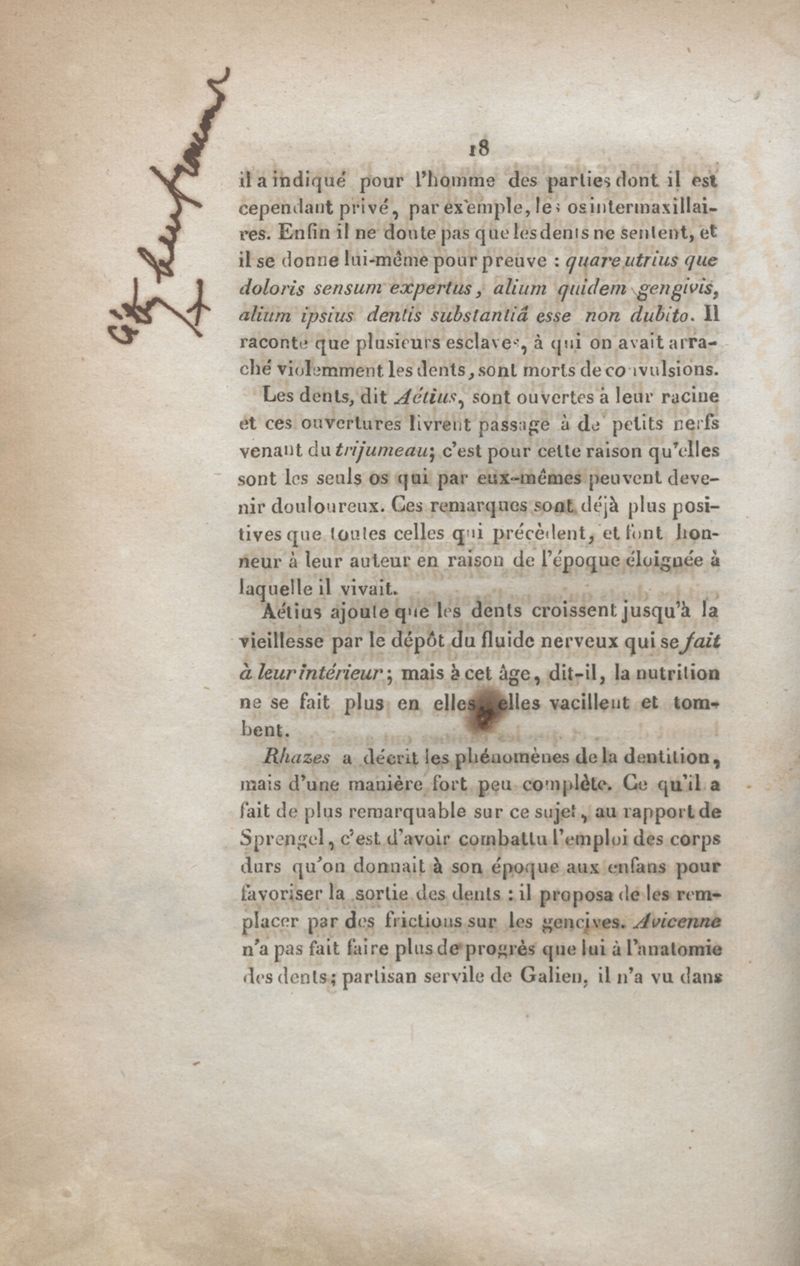 18
il a indiqué pour l'homme des parties dont il est
cependant privé, par exemple, les os intermaxillai-
res. Enfin il ne doute pas que les dents ne sentent, et
il se donne lui-même pour preuve : quare utrius que
doloris sensum expertus, alium quidem gengivis,
alium ipsius dentis substantiâ esse non dubito. Il
raconte que plusieurs esclaves, à qui on avait arra-
ché violemment les dents, sont morts de convulsions.
Les dents, dit Aétius, sont ouvertes à leur racine
et ces ouvertures livrent passage à de petits nerfs
venant du trijumeau; c'est pour cette raison qu'elles
sont les seuls os qui par eux-mêmes peuvent deve-
nir douloureux. Ces remarques sont déjà plus posi-
tives que toutes celles qui précèdent, et font hon-
neur à leur auteur en raison de l'époque éloignée à
laquelle il vivait.
Aétius ajoute que les dents croissent jusqu'à la
vieillesse par le dépôt du fluide nerveux qui se fait
à leur intérieur; mais à cet âge, dit-il, la nutrition
ne se fait plus en elles, elles vacillent et tom-
bent.
Rhazes a décrit les phénomènes de la dentition,
mais d'une manière fort peu complète. Ce qu'il a
fait de plus remarquable sur ce sujet, au rapport de
Sprengel, c'est d'avoir combattu l'emploi des corps
durs qu'on donnait à son époque aux enfans pour
favoriser la sortie des dents : il proposa de les rem-
placer par des frictions sur les gencives. Avicenne
n'a pas fait faire plus de progrès que lui à l'anatomie
des dents; partisan servile de Galien, il n'a vu dans